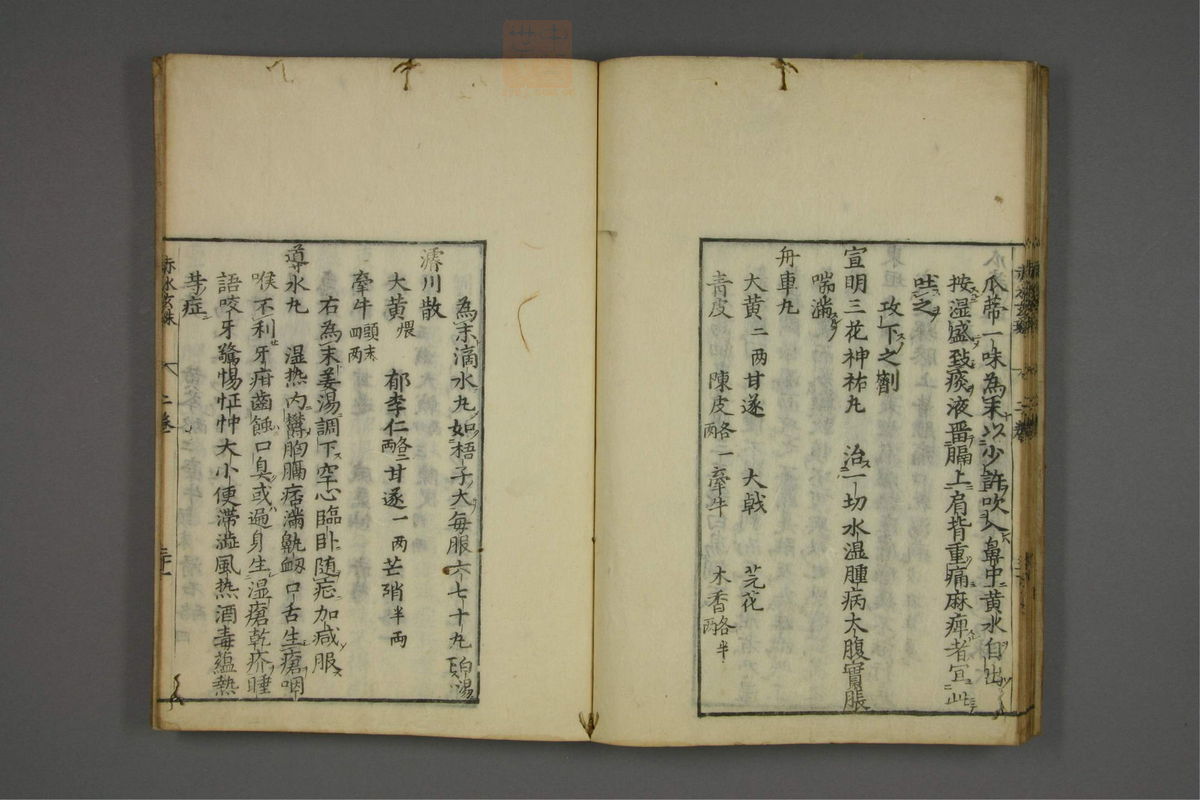 瓜蒂一味為末以少許吹入鼻中黄水自出
按湿盛致痰液畱膈上肩背重痛麻痺者宜此
吐之
攻下之劑
宣明三花神祐丸 治一切水湿腫病大腹實脹
喘滿
舟車丸
大黄二两 甘遂 大戟 芫花
青皮 陳皮各一两 牽牛 木香各半两
為末滴水丸如梧子大每服六七十丸白湯
濬川散
大黄煨 郁李仁各二两 甘遂一两 芒硝半両
牽牛頭末四两
右為末姜湯調下空心臨卧随症加减服
導水丸 湿热内欝胸膈痞滿鼽衂口舌生瘡咽
喉不利牙疳齒蝕口臭或遍身生湿瘡乾疥睡
語咬牙驚惕怔忡大小便滞澁風热酒毒蘊熱
等症
赤水玄珠 二卷 三十一